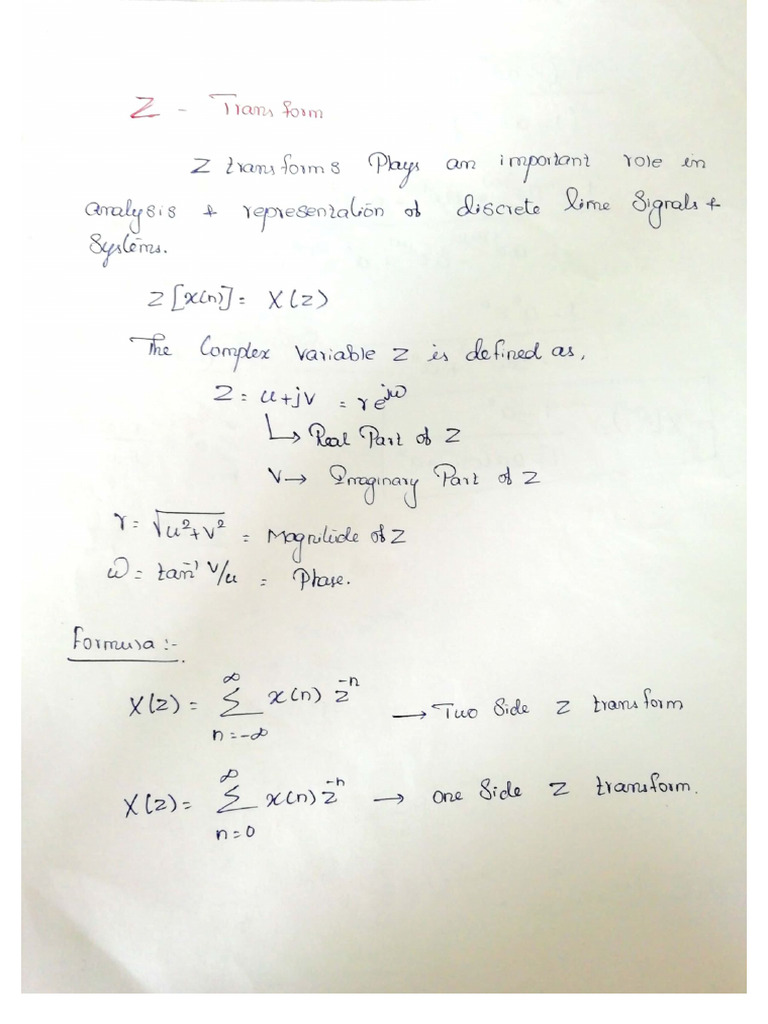 Z - Transform
Z transforms Plays an important role in
analysis + representation of discrete time Signals +
Systems.
Z[x(n)] = X(z)
The Complex variable Z is defined as,
Z = u+jv = re^jω
↳ Real Part of Z
V → Imaginary Part of Z
r = √u²+v² = Magnitude of Z
ω = tan⁻¹ v/u = Phase.
Formula :-
X(z) = ∞ Σ n=-∞ x(n) z^-n → Two Side Z transform
X(z) = ∞ Σ n=0 x(n) z^-n → One Side Z transform.